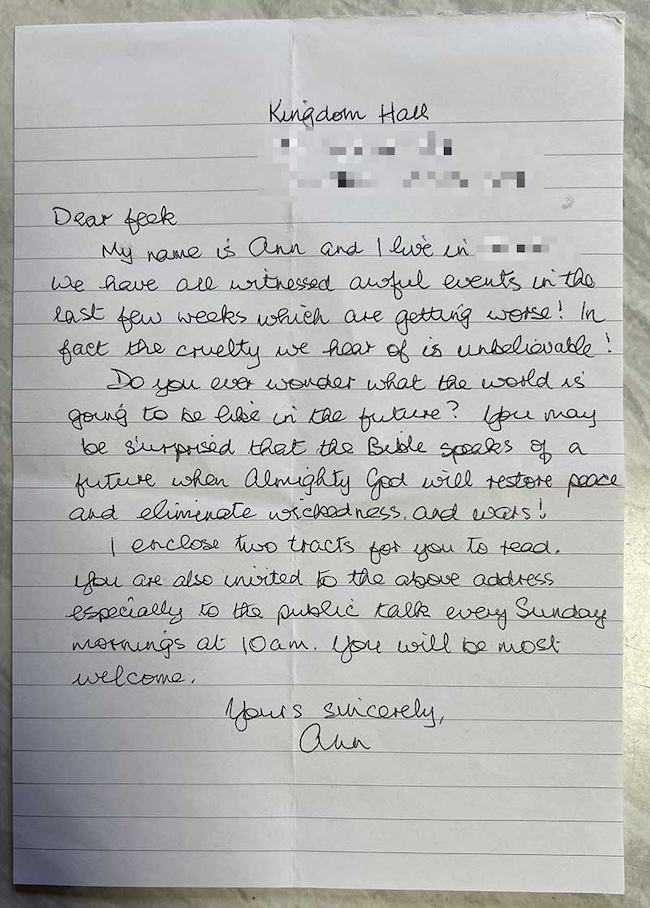 Kingdom Hall
Dear feek
My name is Ann and I live in
We have all witnessed awful events in the
last few weeks which are getting worse! In
fact the cruelty we hear of is unbelievable!
Do you ever wonder what the world is
going to be like in the future? You may
be surprised that the Bible speaks of a
future when Almighty God will restore peace
and eliminate wickedness, and wars!
I enclose two tracts for you to read.
You are also invited to the above address
especially to the public talk every Sunday
mornings at 10am. You will be most
welcome.
Yours sincerely,
Ann